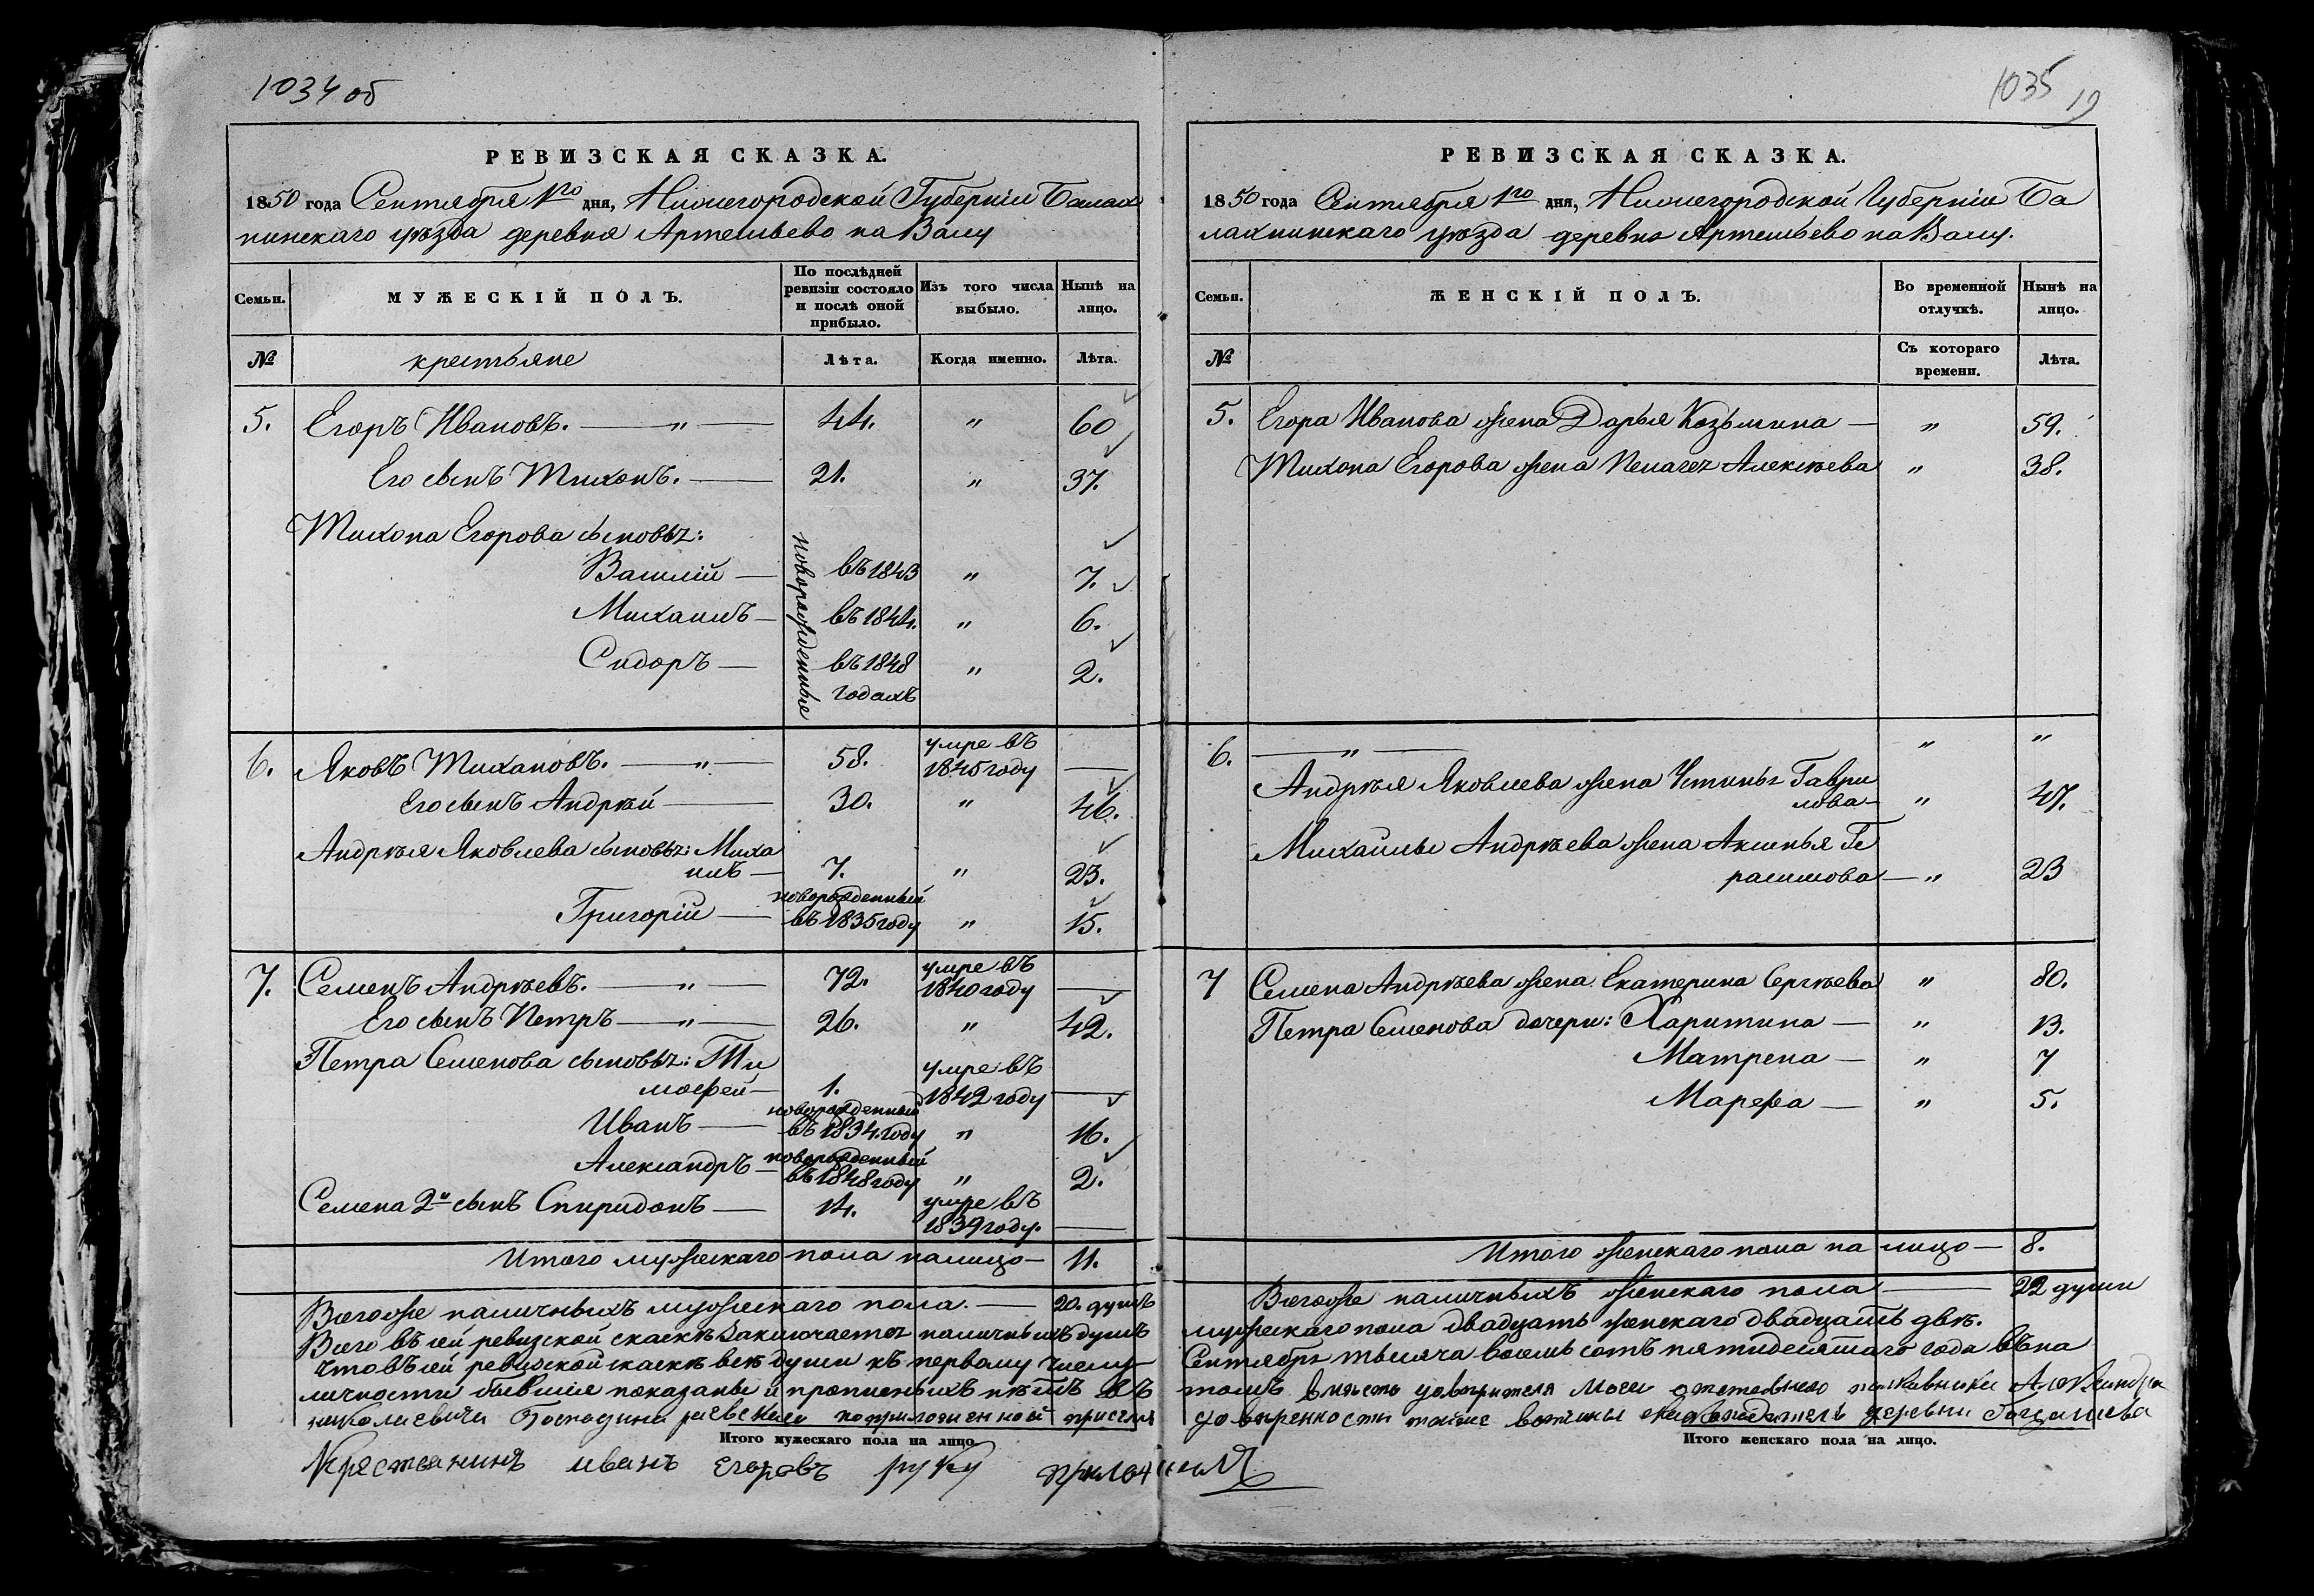 1034 об
РЕВИЗСКАЯ СКАЗКА.
1850 года Сентября 1го дня, Нижегородской Губерніи Балах
нинскаго уѣзда деревня Артемьево на Валу
Семьи. МУЖЕСКІЙ ПОЛЪ. По послѣдней ревизіи состояло и послѣ оной прибыло. Изъ того числа выбыло. Нынѣ на лицо.
№ крестьяне Лѣта. Когда именно. Лѣта.
5. Егоръ Ивановъ. — " — 44. " 60
Его сынъ Тихонъ. — 21. " 37.
Тихона Егорова сыновья:
новорожденные
Василій — въ 1843 " 7.
Михаилъ — въ 1844. " 6.
Сидоръ — въ 1848 " 2.
годахъ
6. Яковъ Тихановъ. — " — 58. умре въ 1845 году —
Его сынъ Андрѣй — 30. " 46.
Андрѣя Яковлева сыновья: Миха
илъ — 7. " 23.
Григорій — новорожденный въ 1835 году " 15.
7. Семенъ Андрѣевъ. — " — 72. умре въ 1840 году —
Его сынъ Петръ — " — 26. " 42.
Петра Семенова сыновья: Ти
мофей — 1. умре въ 1842 году —
Иванъ — новорожденный въ 1834. году " 16.
Александръ — новорожденный въ 1848 году " 2.
Семена 2й сынъ Спиридонъ — 14. умре въ 1839 году. —
Итого мужескаго пола налицо — 11.
Всегоже наличныхъ мужескаго пола. — 20. душъ
Всего въ сей ревизской скаскѣ заключается наличныхъ душъ
что въ сей ревизской скаскѣ всѣ души къ первому числу
личности бывшія показаны и прописныхъ нѣтъ въ
николаевича Господина раевскаго
Итого мужескаго пола на лицо.
Крестьянинъ иванъ егоровъ руку приложилъ
1035
19
РЕВИЗСКАЯ СКАЗКА.
1850 года Сентября 1го дня, Нижегородской Губерніи Ба
лахнинскаго уѣзда деревня Артемьево на Валу.
Семьи. ЖЕНСКІЙ ПОЛЪ. Во временной отлучкѣ. Нынѣ на лицо.
№ Съ котораго времени. Лѣта.
5. Егора Иванова жена Дарья Козьмина — " 59.
Тихона Егорова жена Пелагея Алексѣева " 38.
6. — " — " "
Андрѣя Яковлева жена Устинья Гаври
лова — " 47.
Михайлы Андрѣева жена Аксинья Ге
расимова — " 23
7 Семена Андрѣева жена Екатерина Сергѣева " 80.
Петра Семенова дочери: Харитина — " 13.
Матрена — " 7
Марфа — " 5.
Итого женскаго пола на лицо — 8.
Всегоже наличныхъ женскаго пола — 22 души
мужескаго пола двадцать женскаго двадцать двѣ.
Сентября тысяча восемь сотъ пятидесятаго года въ на
томъ вмѣсто
довѣренности вотчины деревни
Итого женскаго пола на лицо.